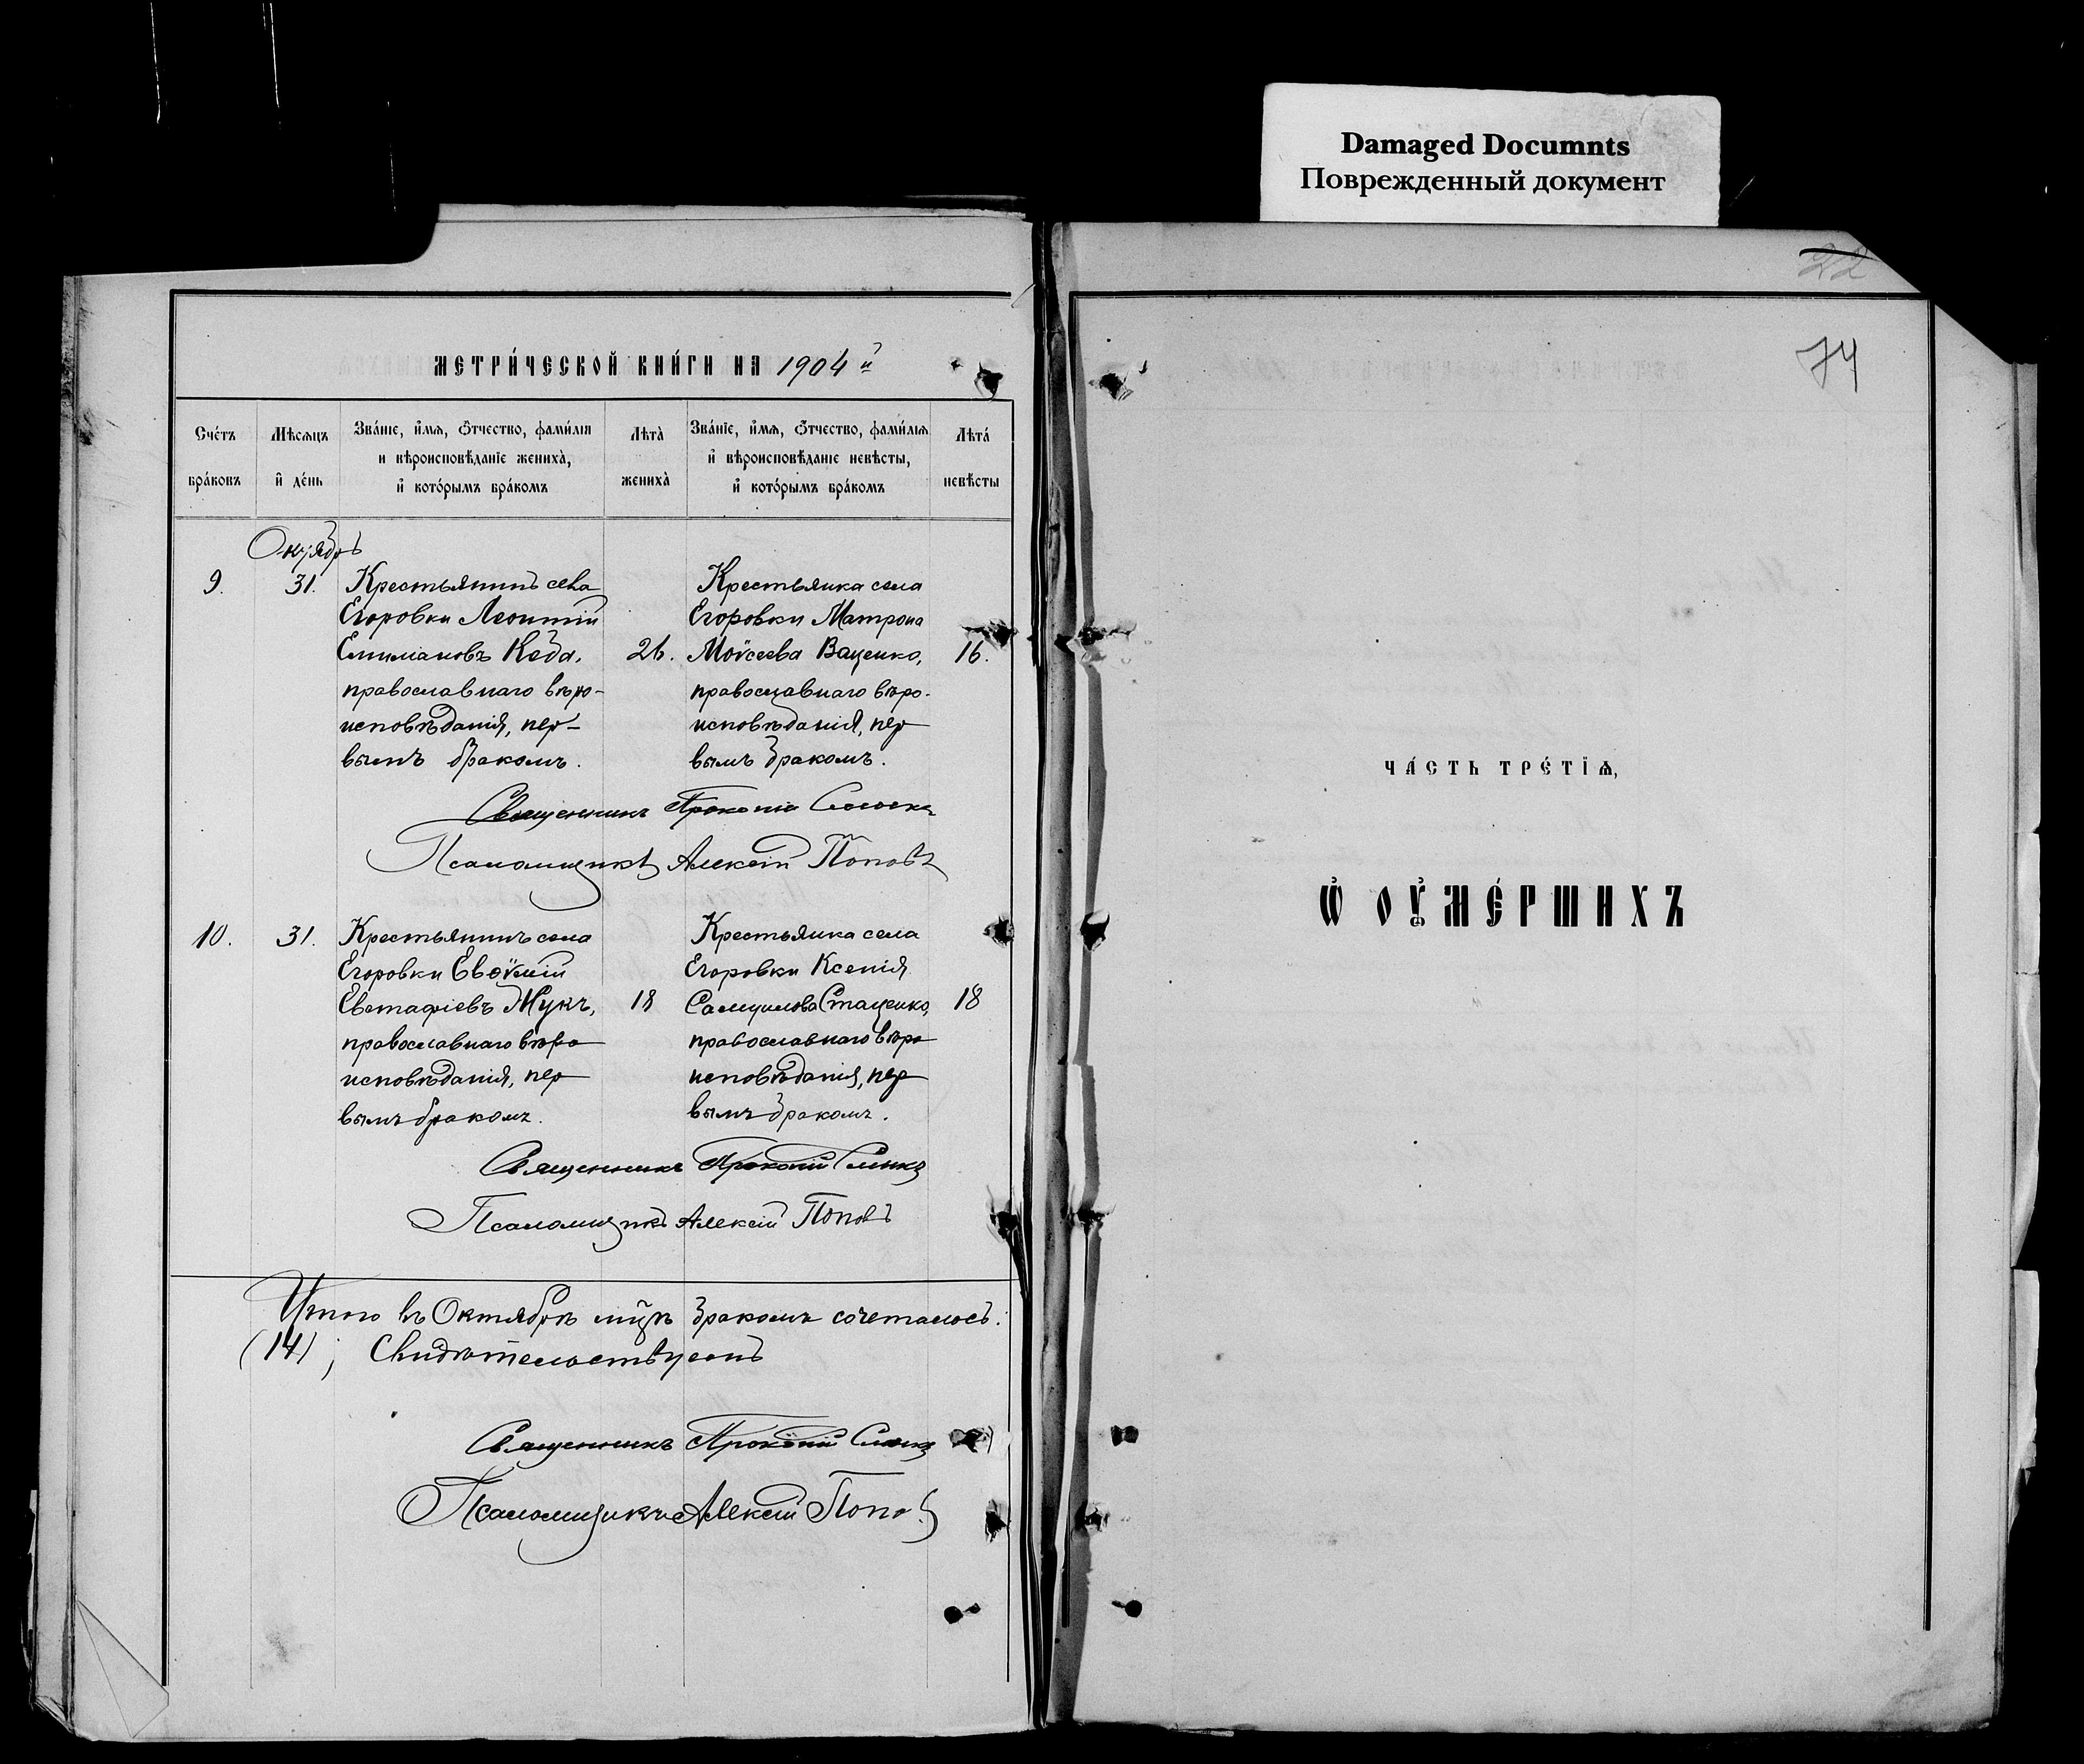 Damaged Documnts
Поврежденный документ
22
74
МЕТРИ́ЧЕСКОЙ КНИ́ГИ НА 1904 й
Сче́тъ бра́ковъ
Мѣсяцъ и де́нь
Зва́нїе, и҆́мя, ѻ҆́тчество, фами́лїя и вѣроисповѣ́данїе жениха̀, и҆ кото́рымъ бра́комъ
Лѣта̀ жениха̀
Зва́нїе, и҆́мя, ѻ҆́тчество, фами́лїя и҆ вѣроисповѣ́данїе невѣ́сты, и҆ кото́рымъ бра́комъ
Лѣта́ невѣ́сты
Октябрь
9. 31. Крестьянинъ села
Егоровки Леонтій
Емиліановъ Кеда,
православнаго вѣро-
исповѣданія, пер-
вымъ бракомъ.
26.
Крестьянка села
Егоровки Матрона
Моѵсеева Ваценко,
православнаго вѣро-
исповѣданія, пер
вымъ бракомъ.
16.
Священникъ Прокопій
Псаломщикъ Алексій Поповъ
10. 31. Крестьянинъ села
Егоровки Евѳѵмій
Евстафіевъ Жукъ,
православнаго вѣро
исповѣданія, пер
вымъ бракомъ.
18
Крестьянка села
Егоровки Ксенія
Самуилова Стаценко,
православнаго вѣро
исповѣданія, пер
вымъ бракомъ.
18
Священникъ Прокопій
Псаломщикъ Алексій Поповъ
Итого въ Октябрѣ мцѣ бракомъ сочеталось:
(14); Свидѣтельствуемъ
Священникъ Прокопій
Псаломщикъ Алексій Поповъ
ЧА́СТЬ ТРЕ́ТЇѦ,
Ѡ҆ ОУ҆МЕ́РШИХЪ